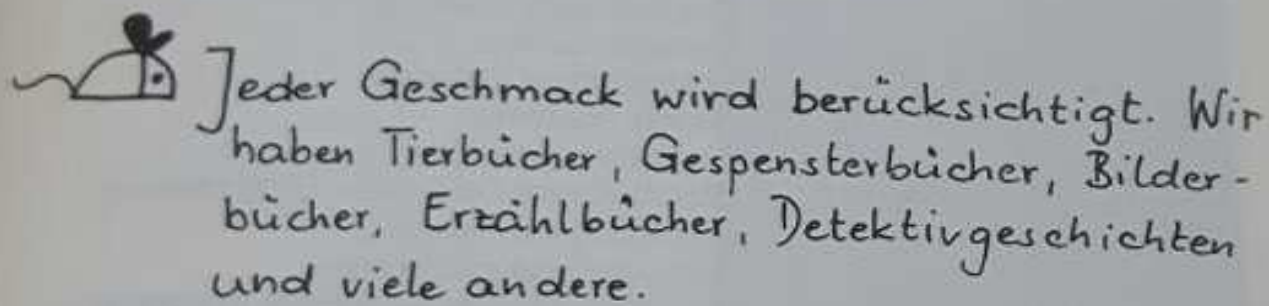 Jeder Geschmack wird berücksichtigt. Wir
haben Tierbücher, Gespensterbücher, Bilder-
bücher, Erzählbücher, Detektivgeschichten
und viele andere.